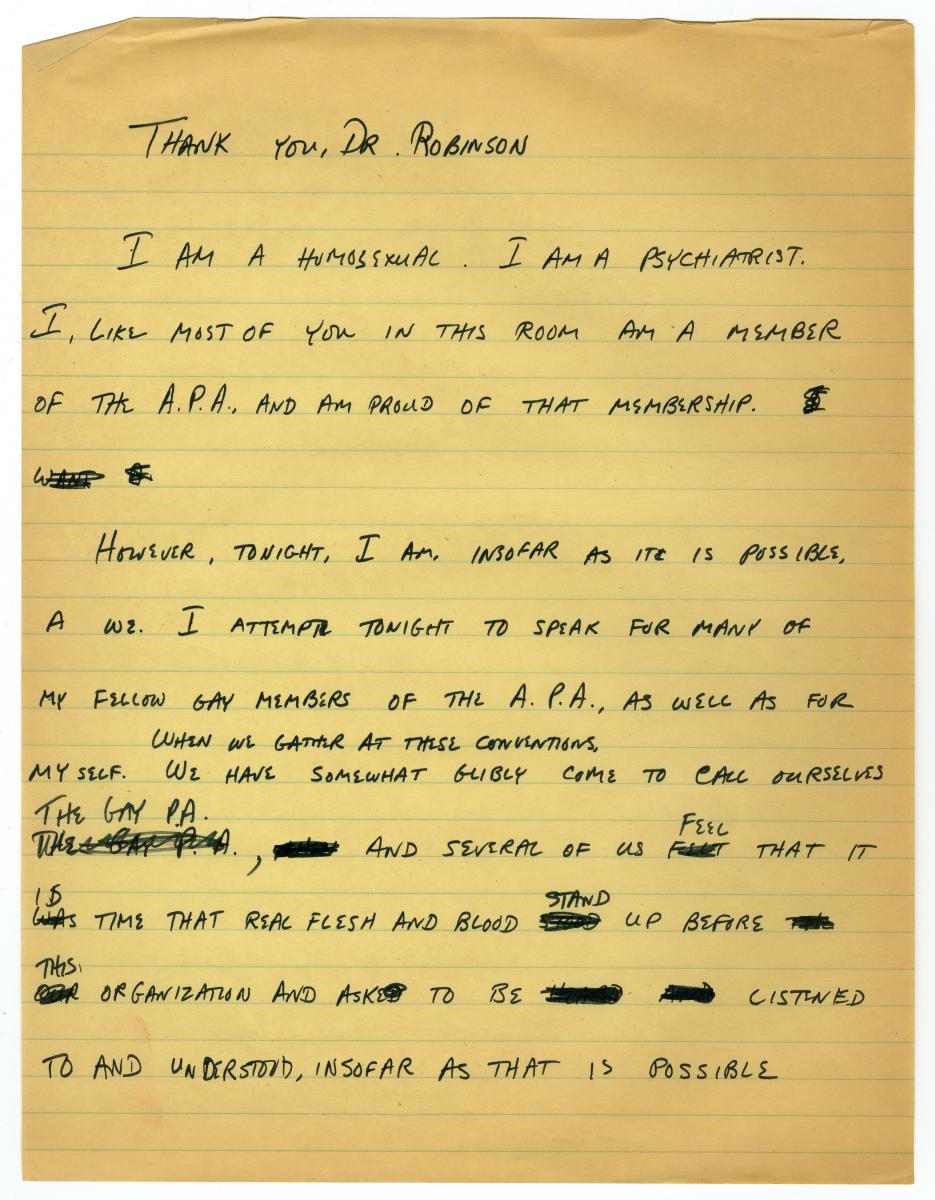 THANK YOU, DR. ROBINSON
I AM A HUMOSEXUAL. I AM A PSYCHIATRIST.
I, LIKE MOST OF YOU IN THIS ROOM AM A MEMBER
OF THE A.P.A., AND AM PROUD OF THAT MEMBERSHIP. I
WANT
HOWEVER, TONIGHT, I AM, INSOFAR AS IT IS POSSIBLE,
A WE. I ATTEMPT TONIGHT TO SPEAK FOR MANY OF
MY FELLOW GAY MEMBERS OF THE A.P.A., AS WELL AS FOR
WHEN WE GATHER AT THESE CONVENTIONS,
MYSELF. WE HAVE SOMEWHAT GLIBLY COME TO CALL OURSELVES
THE GAY P.A.
THE GAY P.A., AND SEVERAL OF US FELT THAT IT
FEEL
IS
WAS TIME THAT REAL FLESH AND BLOOD UP BEFORE
STAND
THIS
OUR ORGANIZATION AND ASK TO BE LISTENED
TO AND UNDERSTOOD, INSOFAR AS THAT IS POSSIBLE